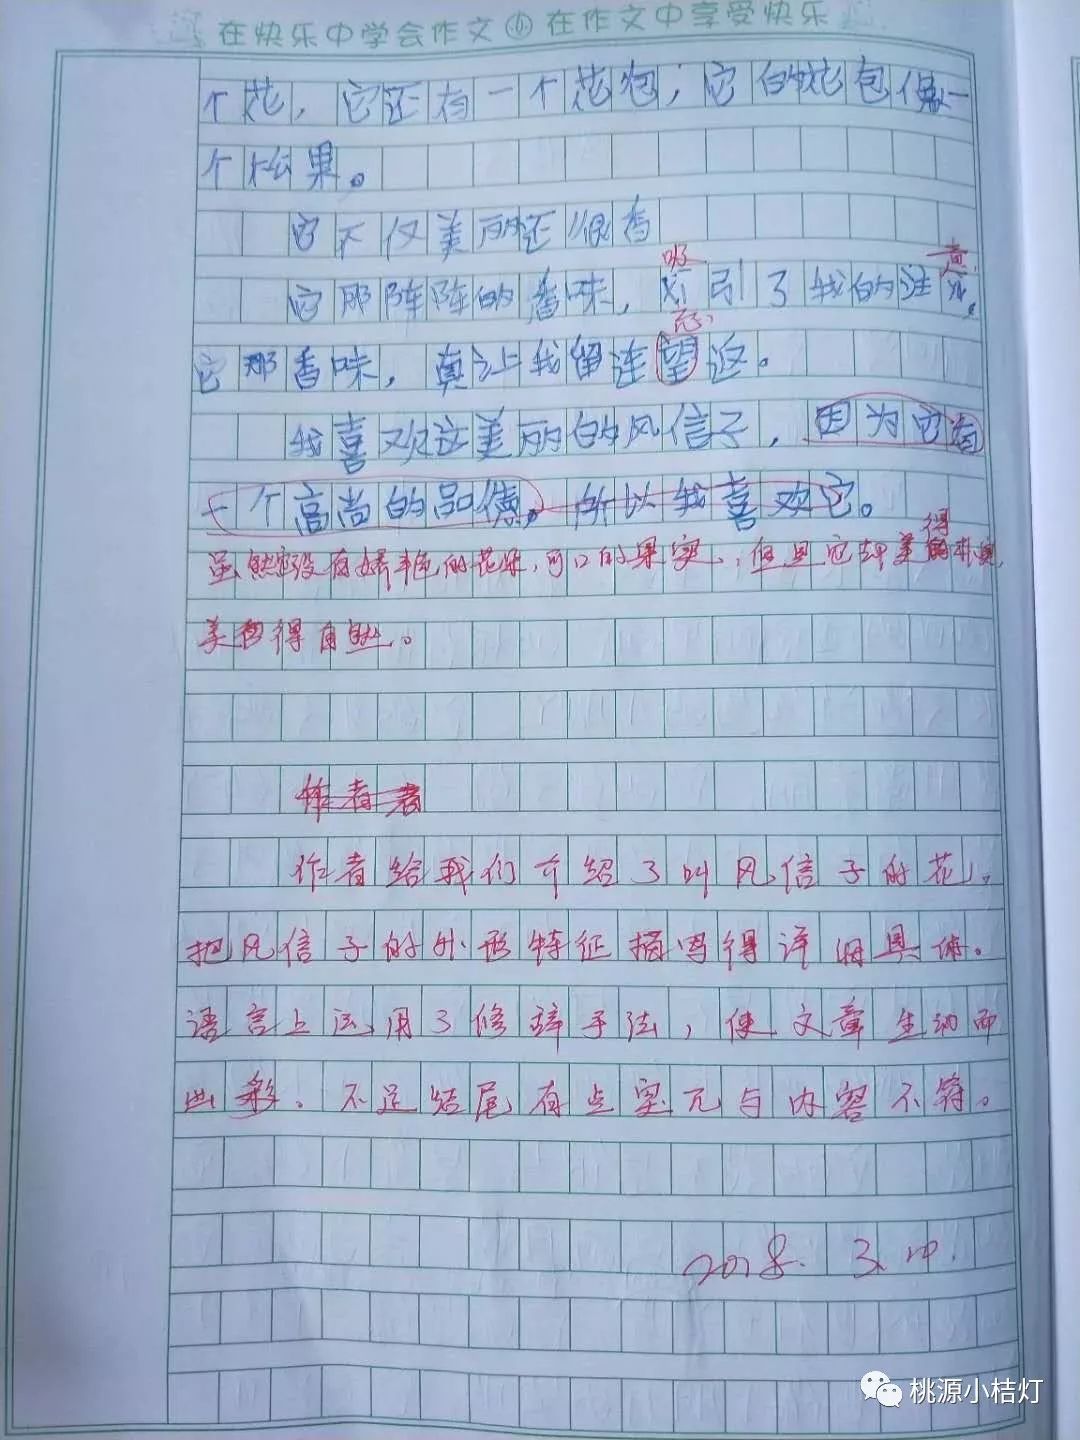 在快乐中学会作文⑥在作文中享受快乐
个花，它还有一个花苞，它的花包像一
个松果。
它不仅美丽还很香
吸 意
它那阵阵的香味，引了我的注
忘
它那香味，真让我留连望返。
我喜欢这美丽的风信子，因为它有
一个高尚的品德，所以我喜欢它。
得
虽然它没有的花朵，可口的果实，但是它却美的朴实，
美得自然。
作者者
作者给我们介绍了叫风信子的花，
把风信子的外形特征描写得详细具体。
语言上运用了修辞手法，使文章生动而
出彩。不足结尾有点突兀与内容不符。
2018.3.
桃源小桔灯